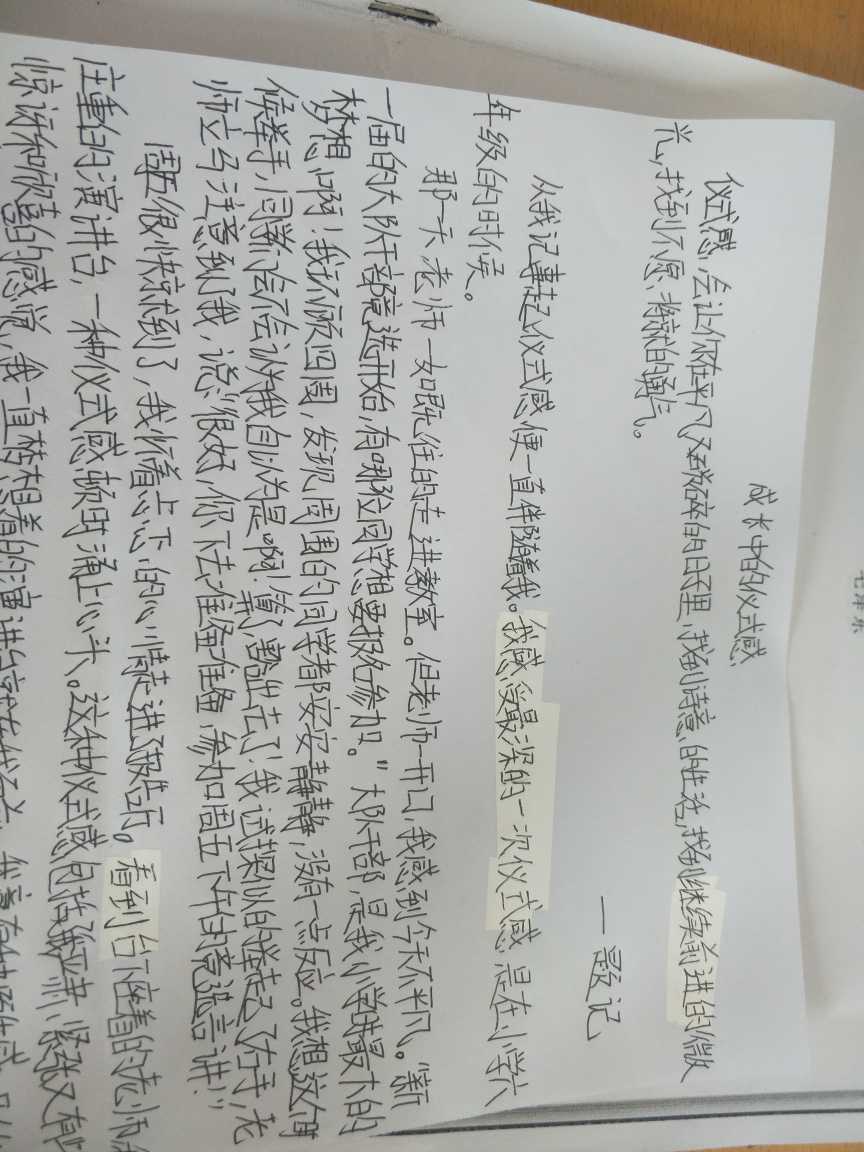 毛泽东
成长中的仪式感
仪式感,会让你在平凡又琐碎的日子里,找到诗意的生活,找到继续前进的微
光,找到不愿将就的勇气。
——题记
从我记事起,仪式感便一直伴随着我。我感受最深的一次仪式感是在小学六
年级的时候。
那一天老师一如既往的走进教室。但老师一开口,我感到今天不平凡。“新
一届的大队干部竞选开始,有哪位同学想要报名参加。”大队干部,是我小学时最大的
梦想啊!我环顾四周,发现周围的同学都安安静静,没有一点反应。我想这个时
候举手,同学们会不会认为我自以为是啊!算了,豁出去了!我试探似的举起了右手,老
师立马注意到了我,说:“很好,你下去准备准备,参加周五下午的竞选言讲!”
周五很快就到了,我怀着忐忑的心情走进了报告厅。看到台下座着的老师
庄重的演讲台,一种仪式感顿时涌上心头。这种仪式感包括着严肃、紧张又有些
惊讶和欣喜的感觉,我一直梦想着的演讲台就在我